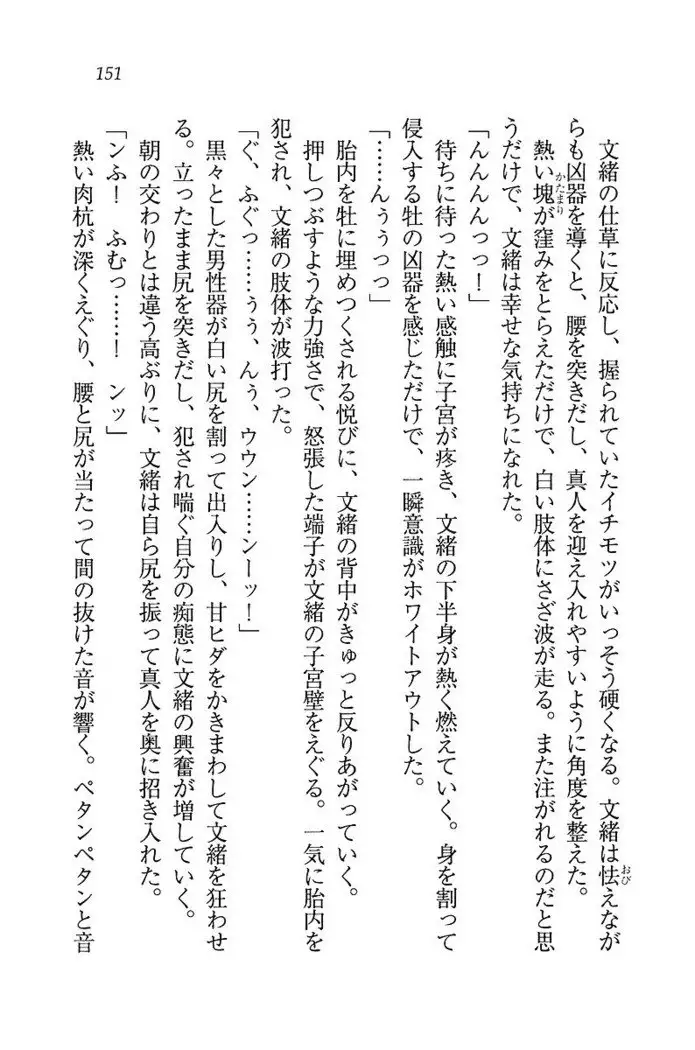 151
文緒の仕草に反応し、握られていたイチモツがいっそう硬くなる。文緒は怯えなが
らも凶器を導くと、腰を突きだし、真人を迎え入れやすいように角度を整えた。
熱い塊が窪みをとらえただけで、白い肢体にさざ波が走る。また注がれるのだと思
うだけで、文緒は幸せな気持ちになれた。
「んんんんっっ！」
待ちに待った熱い感触に子宮が疼き、文緒の下半身が熱く燃えていく。身を割って
侵入する牡の凶器を感じただけで、一瞬意識がホワイトアウトした。
「……んぅぅっっ」
胎内を牡に埋めつくされる悦びに、文緒の背中がきゅっと反りあがっていく。
押しつぶすような力強さで、怒張した端子が文緒の子宮壁をえぐる。一気に胎内を
犯され、文緒の肢体が波打った。
「ぐ、ふぐっ……ぅぅ、んぅ、ウウン……ンーッ！」
黒々とした男性器が白い尻を割って出入りし、甘ヒダをかきまわして文緒を狂わせ
る。立ったまま尻を突きだし、犯され喘ぐ自分の痴態に文緒の興奮が増していく。
朝の交わりとは違う高ぶりに、文緒は自ら尻を振って真人を奥に招き入れた。
「ンふ！　ふむっ……！　ンッ」
熱い肉杭が深くえぐり、腰と尻が当たって間の抜けた音が響く。ペタンペタンと音